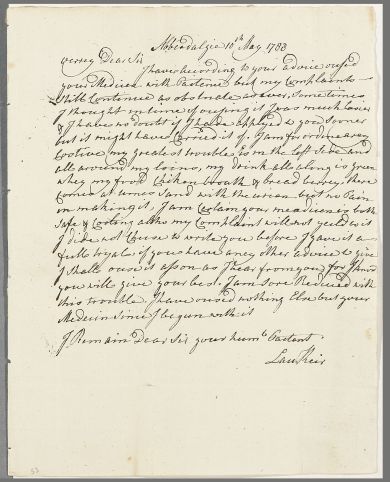 Aberdalgie 10th May 1783
verrey Dear Sir
I have according to your advice oused
your Medicen with Patience but my Complaints
still Continue as obstinate as ever, Sometimes
I thought in time of ousing it I was much better
& I have no doubt if I hade applied to you Sooner
but it might have Carried it of. I am for ordineary
costive my greatest trouble is in the left Side and
all around my loins, my drink all along is green
whey my food Chiken broath & bread & whey, there
comes at times Sand with the urian but no Pain
in making it. I am Certain your meadicen is both
Safe & Cooling altho my Complaint will not yeald to it
I dide not Chuse to write you before I gave it a
full tryale if you have aney other advice to give
I Shall ouse it assoon as I hear from you for I know
you will give your best. I am Sore Reduced with
this trouble I have oused nothing Else but your
Medicin Since I begun with it
I Remain Dear Sir your humle Patient
Law Keir
53